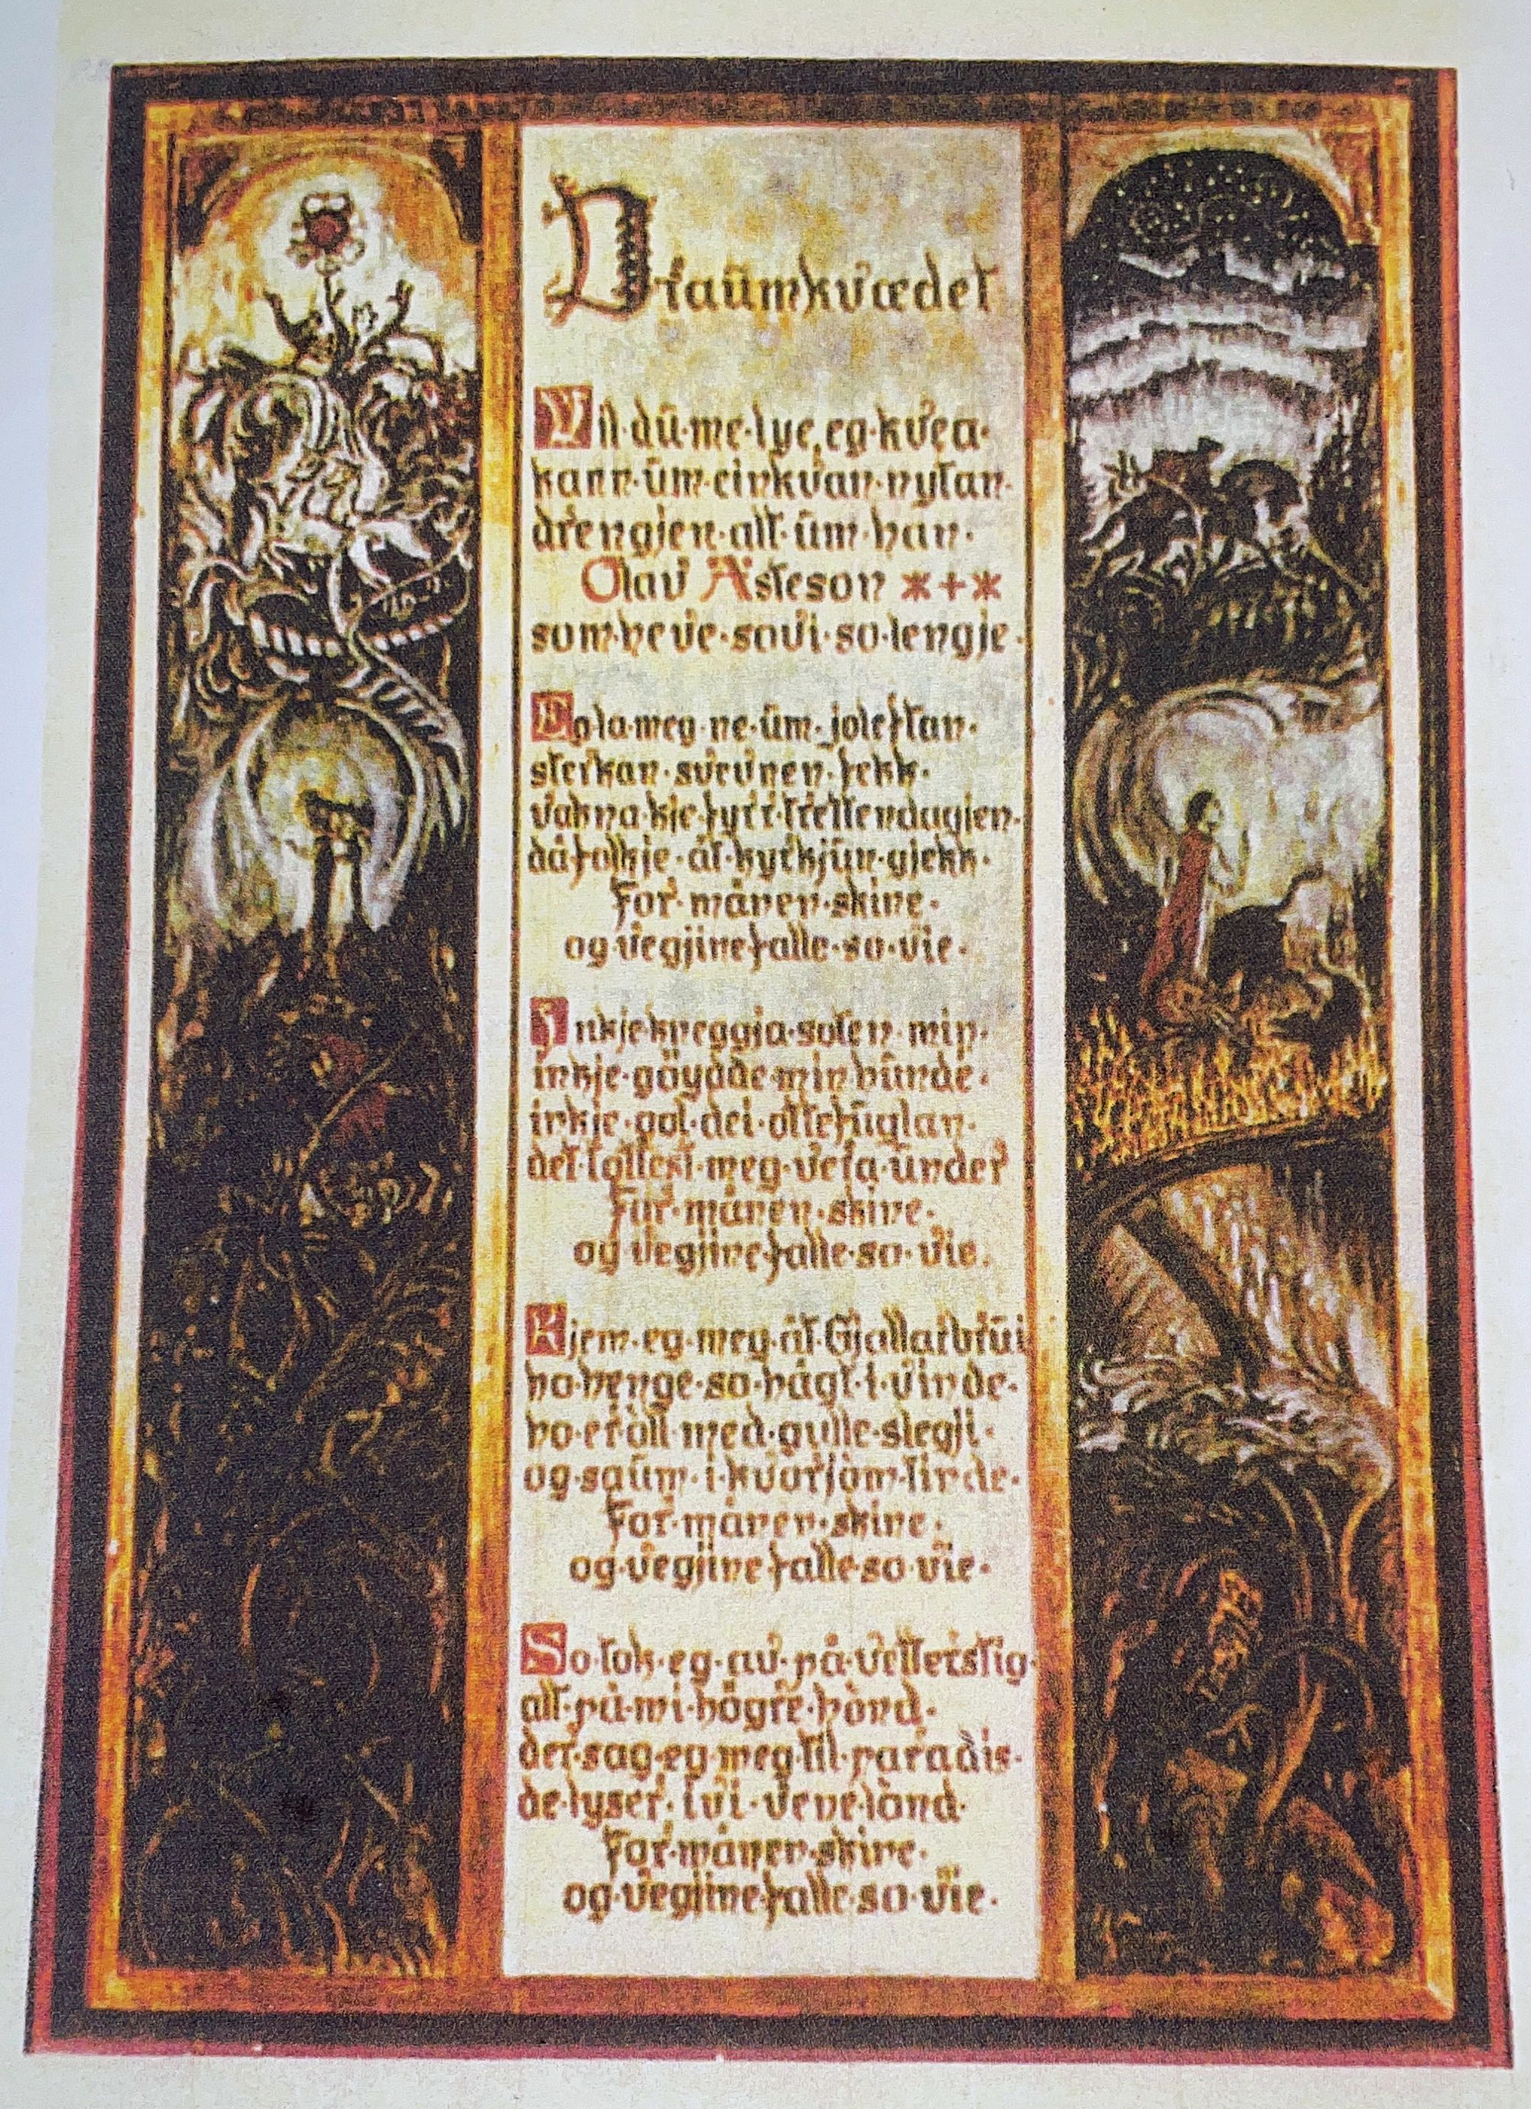 Draumkvædet
Vil·dū·me·lye,eg·kvea·
kann·ūm·einkvan·nytan·
drengjen·alt·ūm·han·
Olav Åsteson *+*
som·heve·sovi·so·lengje·
Eg·la·meg·ne·ūm·joleftan·
sterkan·svevnen·fekk·
vakna·kje·fyrr·trettendagjen·
då·folkje·åt·kyrkjūn·gjekk·
For·månen·skine·
og·vegjine·falle·so·vie·
Inkje·kneggja·solen·min·
inkje·göydde·min·hūnde·
inkje·gol·dei·ottefūglan·
det·tottest·meg·vera·ūnder
For·månen·skine·
og·vegjine·falle·so·vie.
Kjem·eg·meg·åt·Gjallarbrūi
ho·henge·so·hågt·i·vinde·
ho·er·oll·med·gulle·slegji·
og·saūm·i·kvorjom·tinde·
For·månen·skine·
og·vegjine·falle·so·vie·
So·tok·eg·av·på·vetterstig·
alt·på·mi·högre·hònd·
der·sag·eg·meg·til·paradis·
de·lyser·ivi·vene·lònd·
For·månen·skine·
og·vegjine·falle·so·vie·